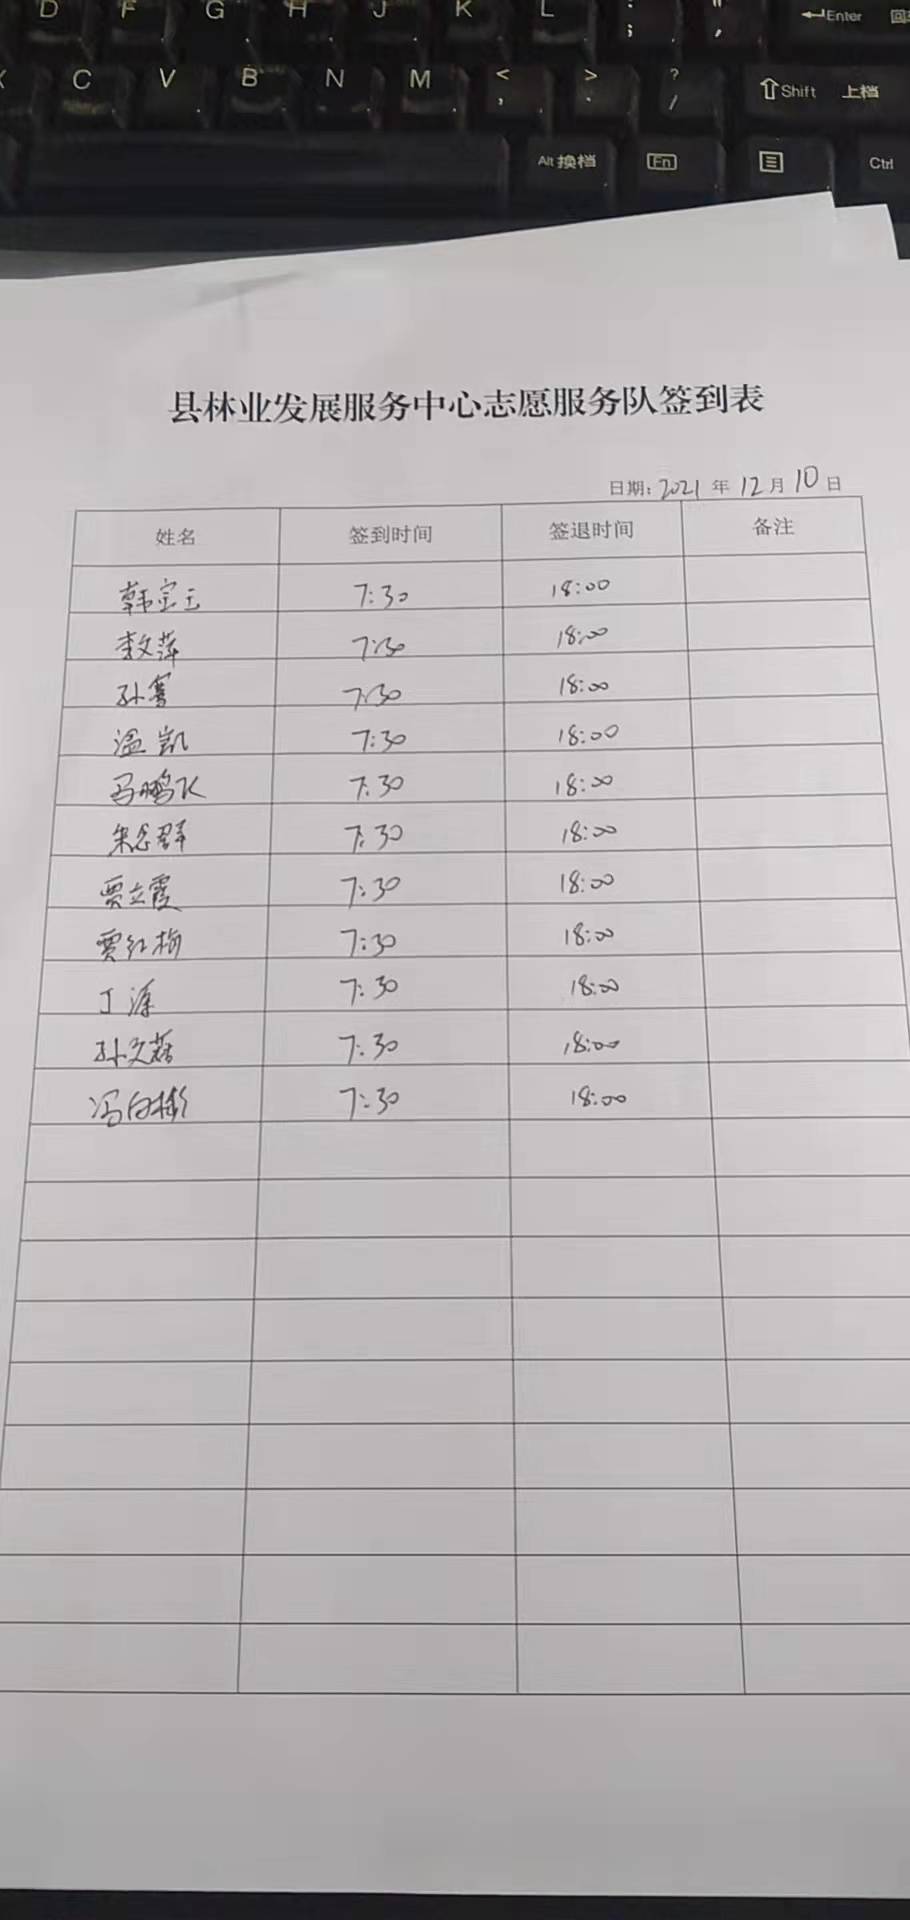 D F G H J K L : ; " , ←Enter 回车
X C V B N M < , > . ? / ⇧Shift 上档
Alt 换档 Fn Ctrl
县林业发展服务中心志愿服务队签到表
日期: 2021 年 12 月 10 日
姓名 签到时间 签退时间 备注
韩宝玉 7:30 18:00
李文萍 7:30 18:00
孙骞 7:30 18:00
温凯 7:30 18:00
马鹏飞 7:30 18:00
朱念群 7:30 18:00
贾立霞 7:30 18:00
贾红梅 7:30 18:00
丁源 7:30 18:00
孙文 7:30 18:00
冯向彬 7:30 18:00